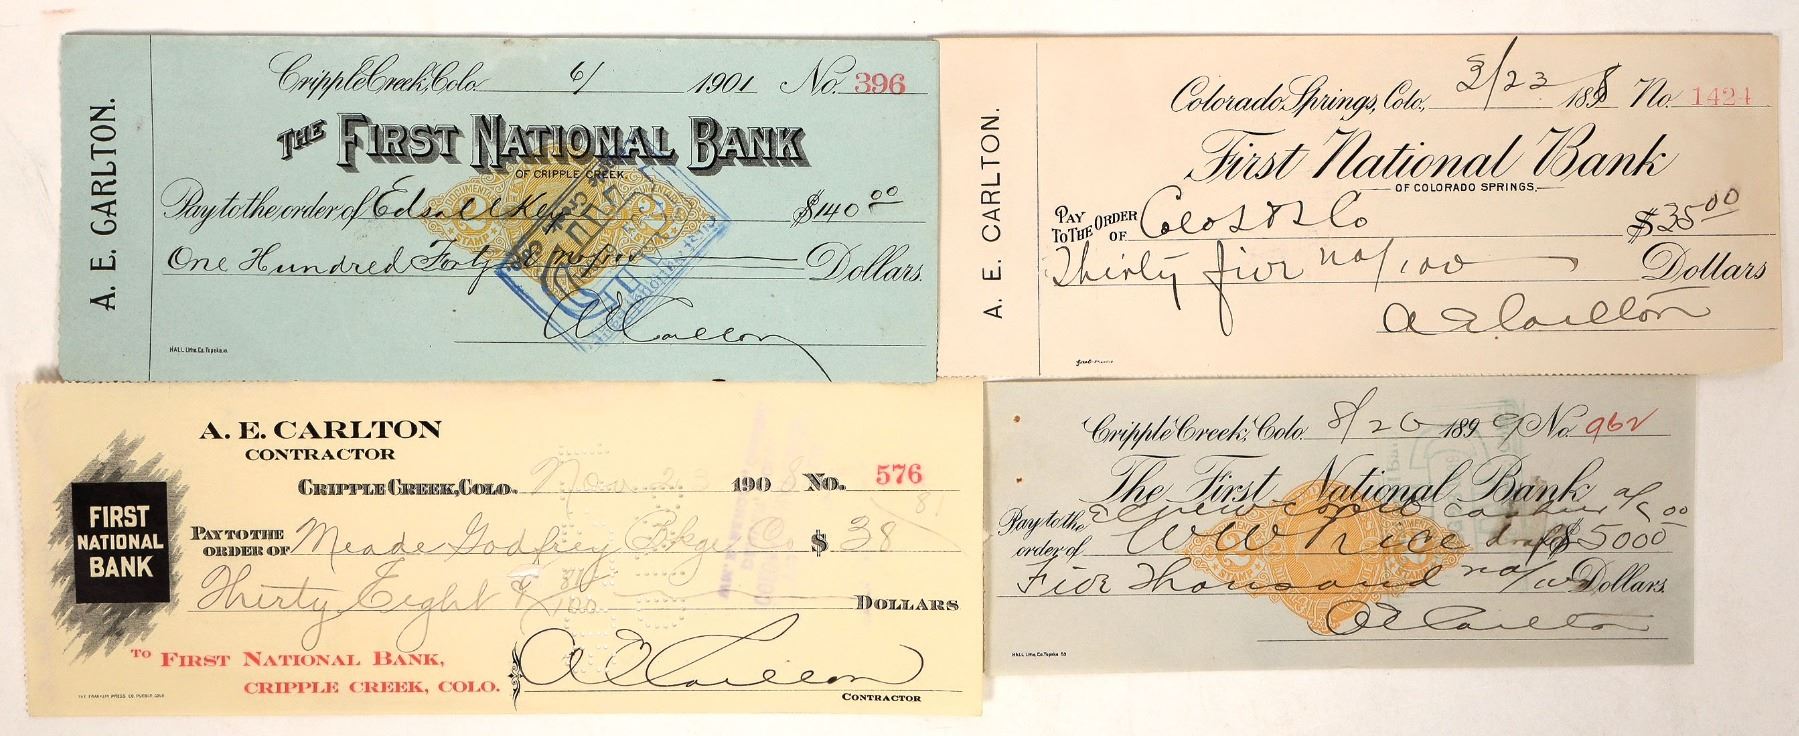 A. E. CARLTON.
Cripple Creek, Colo. 6/ 1901 No. 396
THE FIRST NATIONAL BANK
OF CRIPPLE CREEK.
Pay to the order of Edsall Key $140 00
One Hundred Forty & no/100 Dollars.
A E Carlton
HALL Litho. Co. Topeka
A. E. CARLTON.
Colorado Springs, Colo., 3/23 189 No. 1424
First National Bank
OF COLORADO SPRINGS,
PAY TO THE ORDER OF Colo S & S Co $35 00
Thirty five no/100 Dollars
A E Carlton
A. E. CARLTON
CONTRACTOR
CRIPPLE CREEK, COLO. Nov 23 1908 No. 576
FIRST NATIONAL BANK
PAY TO THE ORDER OF Meade Godfrey Bkge Co $38 81
Thirty Eight & 81/100 DOLLARS
TO FIRST NATIONAL BANK,
CRIPPLE CREEK, COLO.
A E Carlton
CONTRACTOR
THE FRANKLIN PRESS CO. PUEBLO COLO
Cripple Creek, Colo. 8/20 1899 No. 962
The First National Bank
Pay to the order of W W Price $5000 00
Five Thousand no/100 Dollars.
A E Carlton
HALL Litho. Co. Topeka